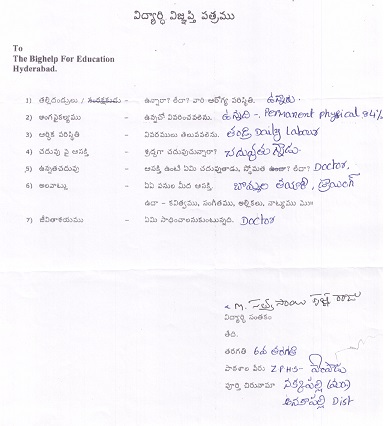 విద్యార్థి విజ్ఞప్తి పత్రము
To
The Bighelp For Education
Hyderabad.
1) తల్లిదండ్రులు / సంరక్షకుడు - ఉన్నారా? లేదా? వారి ఆరోగ్య పరిస్థితి. ఉన్నారు.
2) అంగవైకల్యము - ఉన్నచో వివరించవలెను. ఉన్నది - Permanent physical 94%
3) ఆర్థిక పరిస్థితి - వివరములు తెలుపవలెను. తండ్రి Daily Labour
4) చదువు పై ఆసక్తి - శ్రద్ధగా చదువుచున్నారా? చదువుతున్నాడు.
5) ఉన్నతచదువు - ఆసక్తి ఉంటే ఏమి చదువుతాడు, స్తోమత ఉందా? లేదా? Doctor.
6) అలవాట్లు - ఏఏ పనుల మీద ఆసక్తి. బొమ్మల తయారీ, డ్రాయింగ్
ఉదా - కవిత్వము, సంగీతము, అల్లికలు, నాట్యము మొ॥
7) జీవితాశయము - ఏమి సాధించాలనుకుంటున్నది. Doctor
M. సత్య సాయి రాజు
విద్యార్థి సంతకం
తేది.
తరగతి 6వ తరగతి
పాఠశాల పేరు Z.P.H.S-
పూర్తి చిరునామా నక్కపల్లి (మం)
అనకాపల్లి Dist